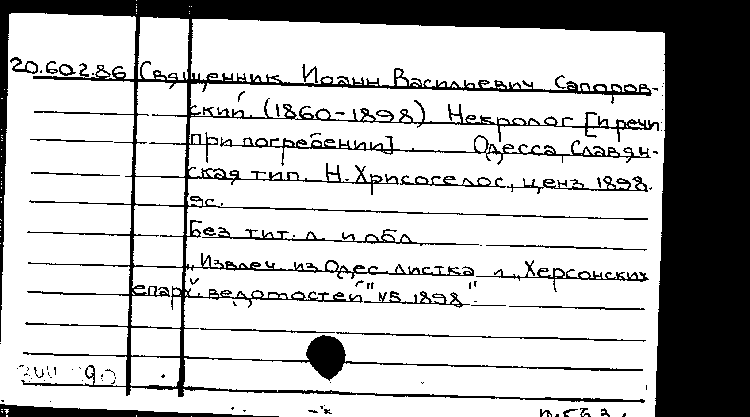 20.60.2.86 Священник Иоанн Васильевич Сапоров-
ский. (1860-1898) Некролог [и речи
при погребении]. Одесса, Славян-
ская тип. Н. Хрисогелос, ценз 1898.
9с.
Без тит. л. и обл.
"Извлеч. из Одес. листка и "Херсонских
епарх. ведомостей" №5 1898".